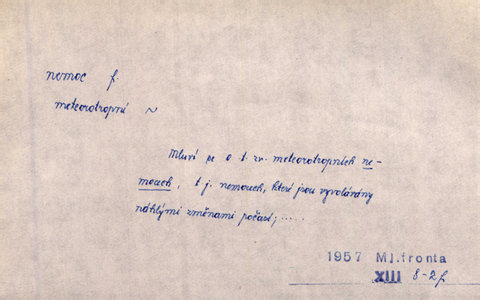 nemoc f.
meteorotropní ~
Mluví se o t. zv. meteorotropních ne-
mocech, t j. nemocech, které jsou vyvolávány
náhlými změnami počasí; .....
1957 Ml.fronta
XIII 8-2f